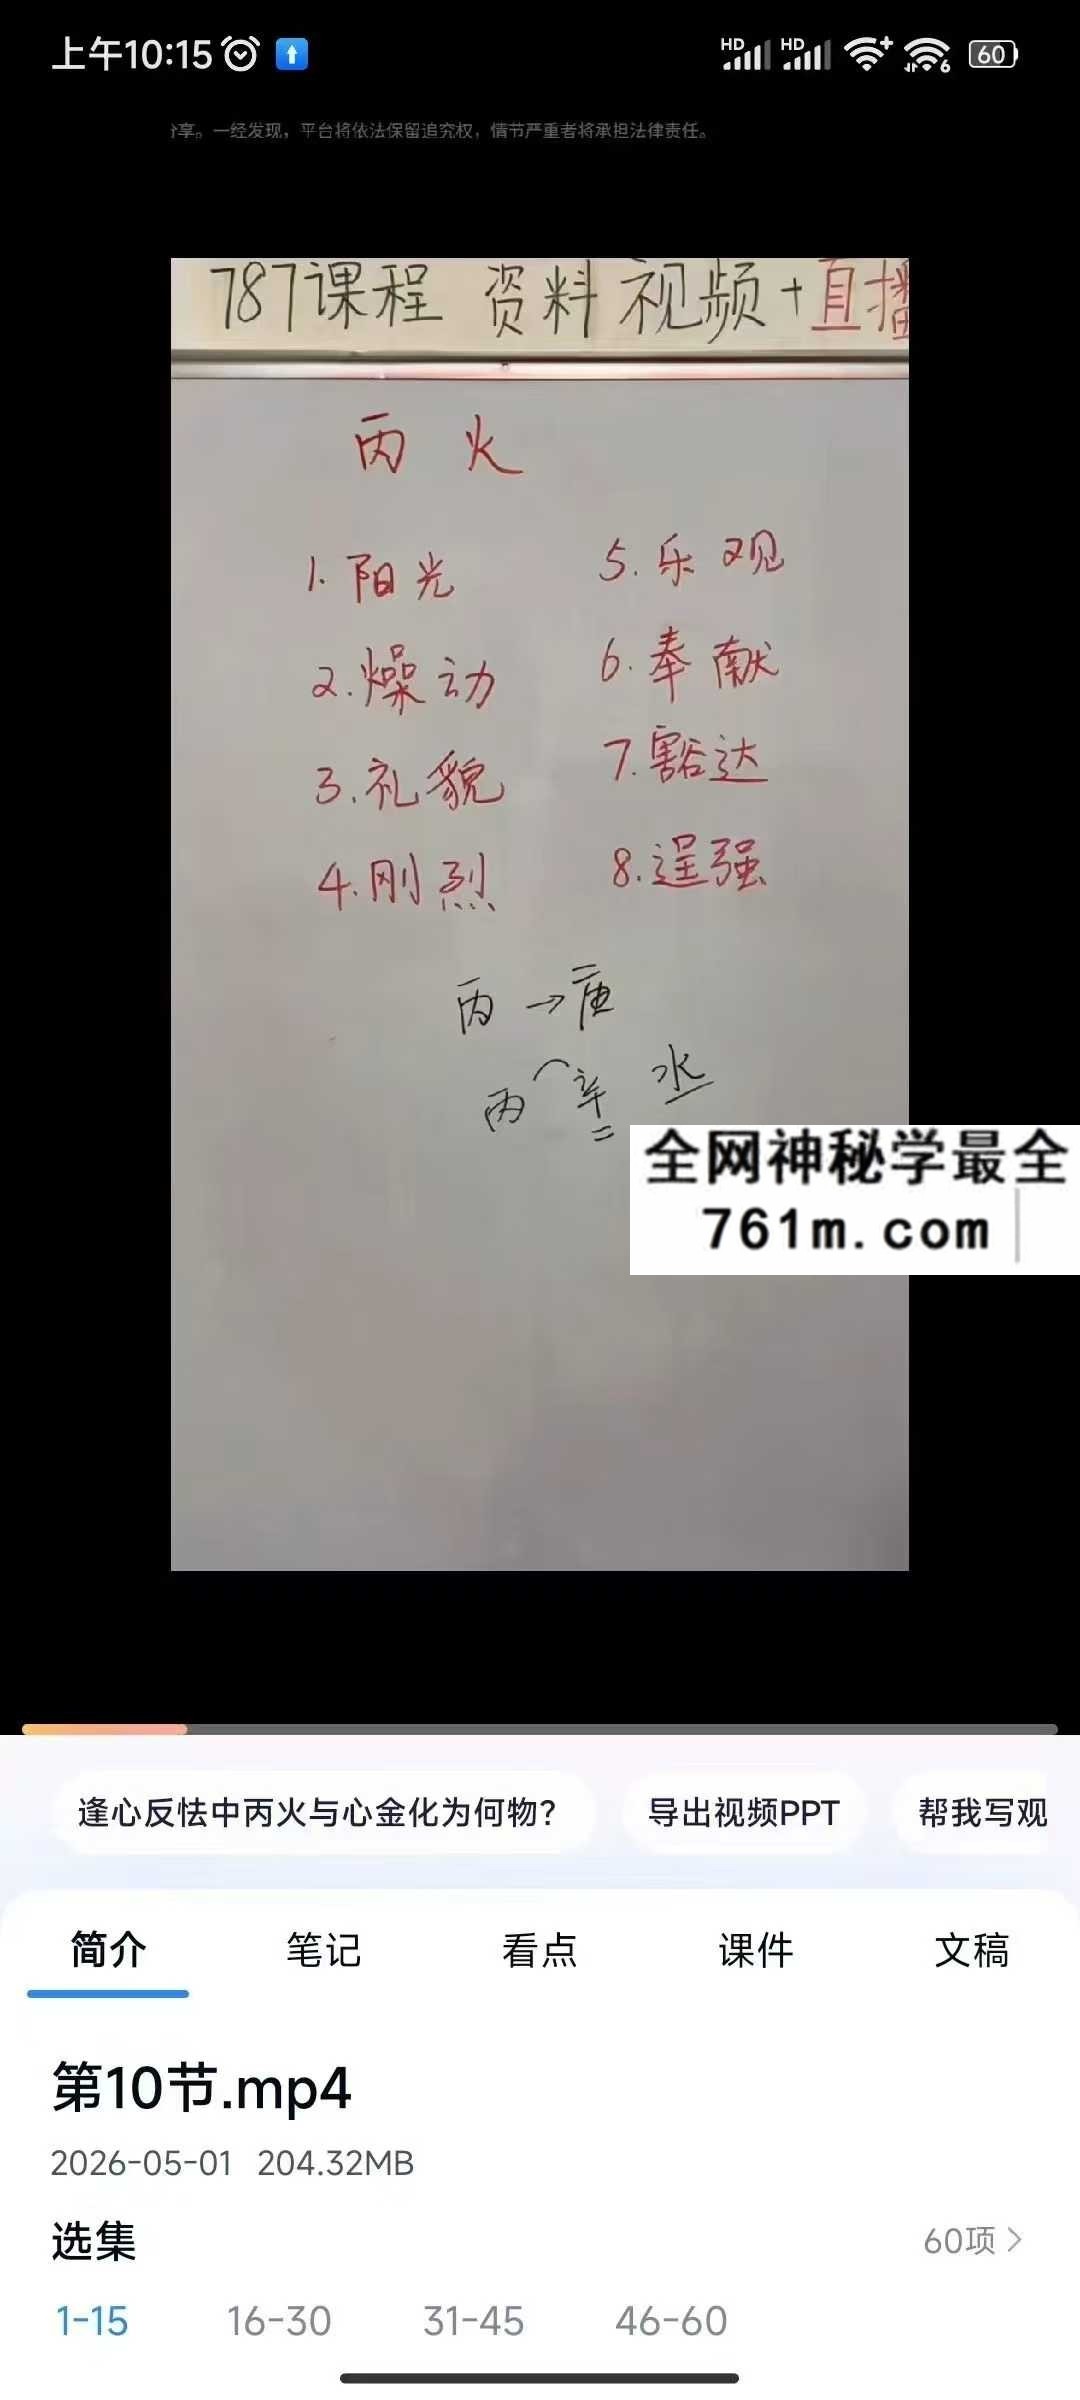 上午10:15
HD HD 60
享。一经发现，平台将依法保留追究权，情节严重者将承担法律责任。
787课程 资料 视频+直播
丙 火
1. 阳光
2. 燥动
3. 礼貌
4. 刚烈
5. 乐观
6. 奉献
7. 豁达
8. 逞强
丙→庚
丙 辛 水
全网神秘学最全
761m.com
逢心反怯中丙火与心金化为何物？
导出视频PPT
帮我写观
简介 笔记 看点 课件 文稿
第10节.mp4
2026-05-01 204.32MB
选集 60项
1-15 16-30 31-45 46-60